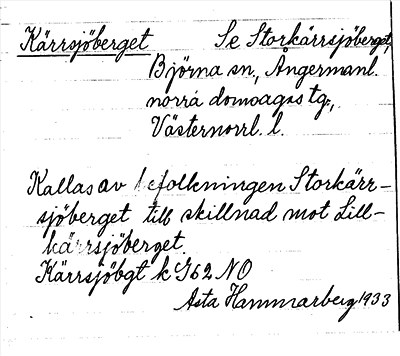 Kärrsjöberget Se Storkärrsjöberget,
Björna sn, Ångermanl.
norra domsagas tg,
Västernorrl. l.
Kallas av befolkningen Storkärr-
sjöberget till skillnad mot Lill-
kärrsjöberget.
Kärrsjöbgt k G62 NO
Asta Hammarberg 1933